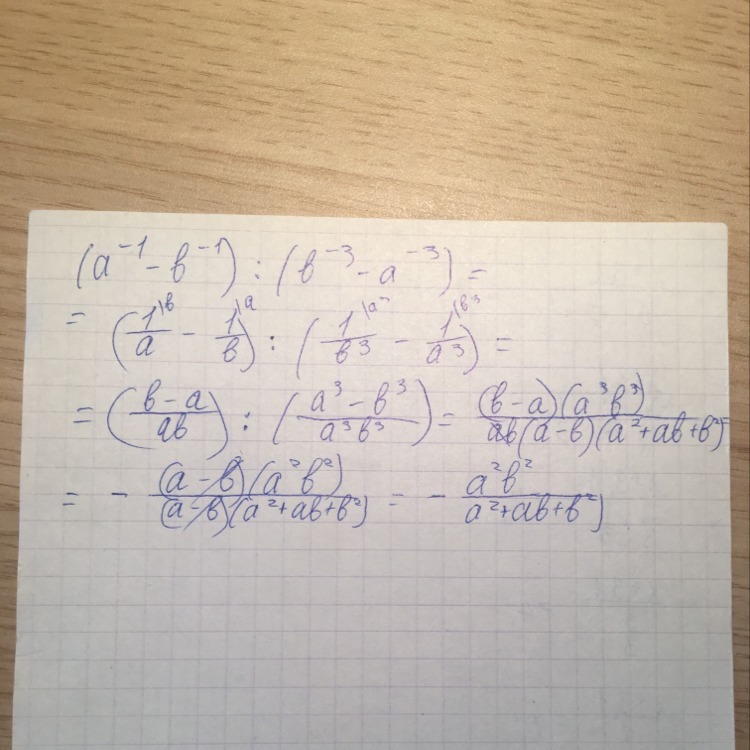 (a⁻¹ - b⁻¹) : (b⁻³ - a⁻³) =
= (1\ᵇ/a - 1\ᵃ/b) : (1\ᵃ³/b³ - 1\ᵇ³/a³) =
= ((b-a)/ab) : ((a³-b³)/a³b³) = (b-a)(a³b³)/ab(a-b)(a²+ab+b²) =
= - (a-b)(a²b²)/(a-b)(a²+ab+b²) = - a²b²/a²+ab+b²)